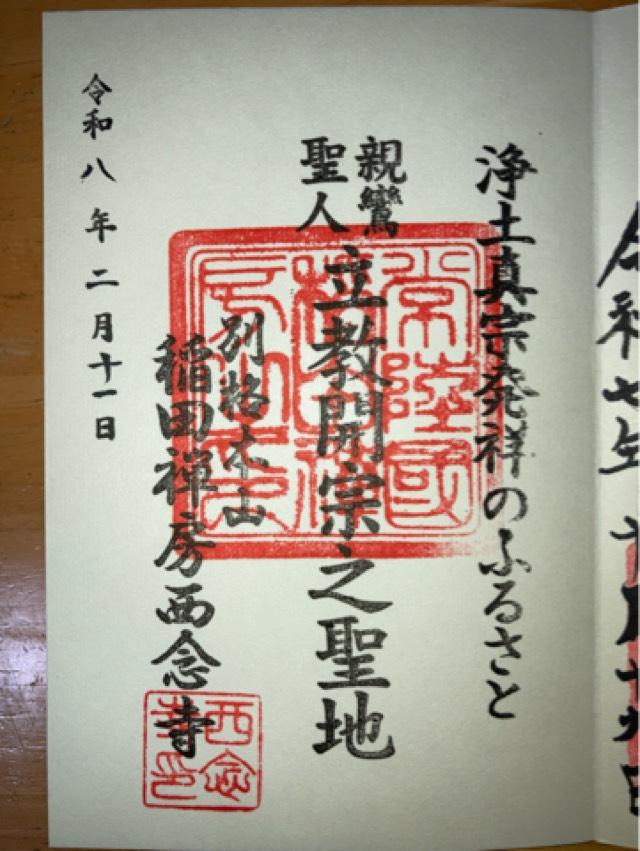 浄土真宗発祥のふるさと
親鸞
聖人
立教開宗之聖地
別格本山
稲田禅房西念寺
令和八年二月十一日
常陸國
西念
寺印
令和七年